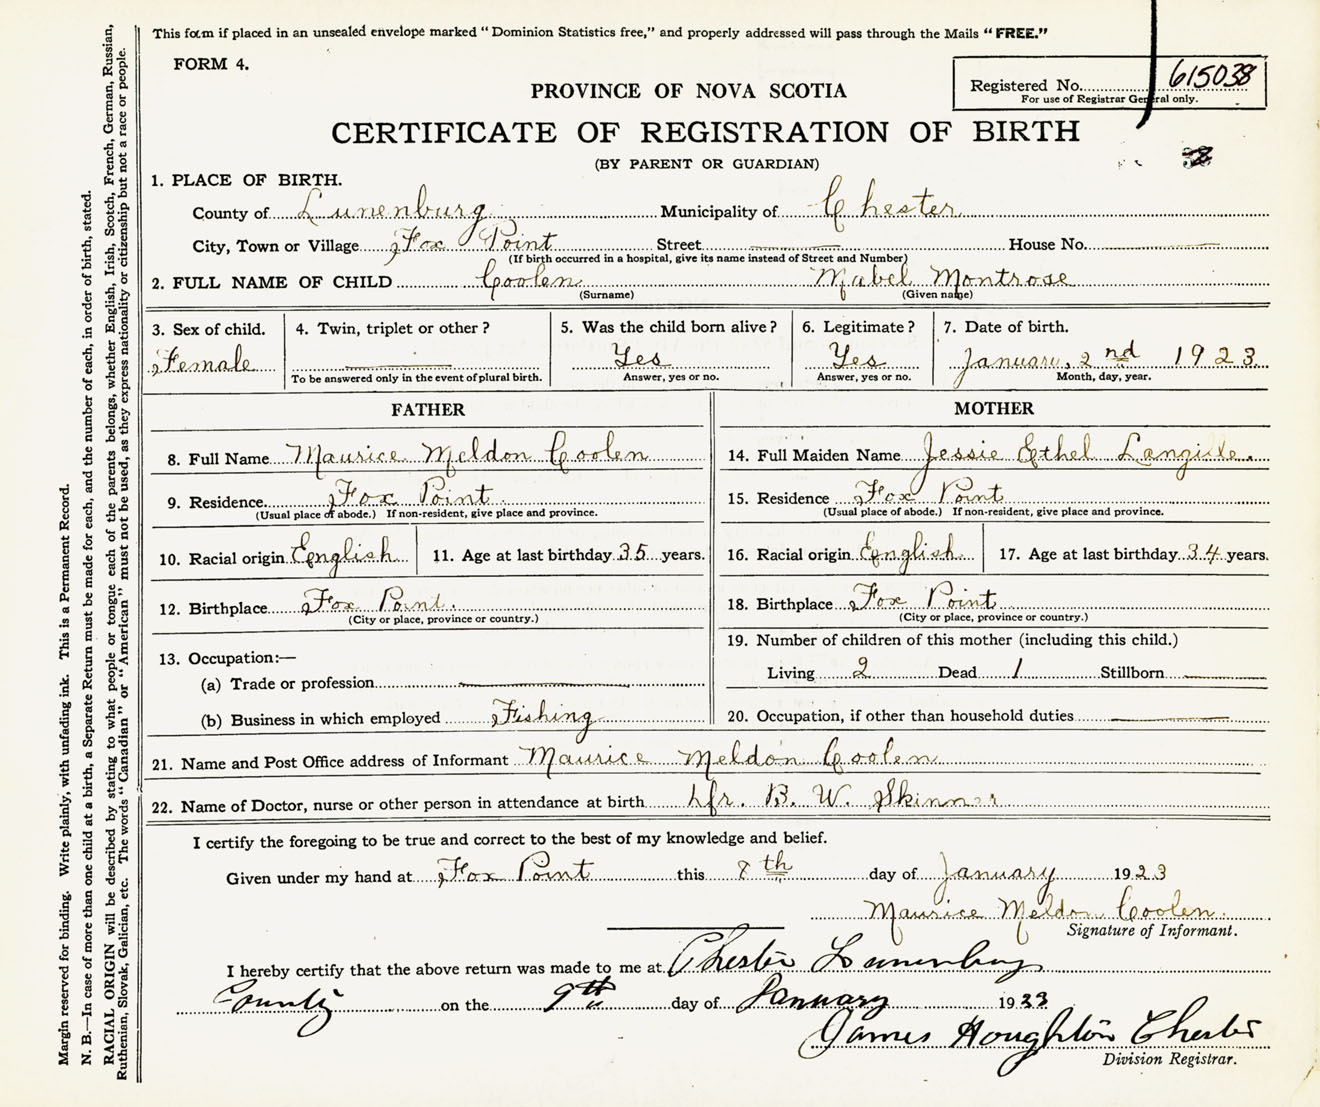 This form if placed in an unsealed envelope marked “Dominion Statistics free,” and properly addressed will pass through the Mails “FREE.”
FORM 4.
Registered No. 615038
For use of Registrar General only.
PROVINCE OF NOVA SCOTIA
CERTIFICATE OF REGISTRATION OF BIRTH
(BY PARENT OR GUARDIAN)
1. PLACE OF BIRTH.
County of Lunenburg Municipality of Chester
City, Town or Village Fox Point Street House No.
(If birth occurred in a hospital, give its name instead of Street and Number)
2. FULL NAME OF CHILD Coolen Mabel Montrose
(Surname) (Given name)
3. Sex of child. 4. Twin, triplet or other? 5. Was the child born alive? 6. Legitimate? 7. Date of birth.
Female Yes Yes January, 2nd 1923.
To be answered only in the event of plural birth. Answer, yes or no. Answer, yes or no. Month, day, year.
FATHER
8. Full Name Maurice Meldon Coolen
9. Residence Fox Point
(Usual place of abode.) If non-resident, give place and province.
10. Racial origin English 11. Age at last birthday 35 years.
12. Birthplace Fox Point.
(City or place, province or country.)
13. Occupation:—
(a) Trade or profession
(b) Business in which employed Fishing
MOTHER
14. Full Maiden Name Jessie Ethel Langille.
15. Residence Fox Point
(Usual place of abode.) If non-resident, give place and province.
16. Racial origin English 17. Age at last birthday 34 years.
18. Birthplace Fox Point
(City or place, province or country.)
19. Number of children of this mother (including this child.)
Living 2 Dead 1 Stillborn
20. Occupation, if other than household duties
21. Name and Post Office address of Informant Maurice Meldon Coolen
22. Name of Doctor, nurse or other person in attendance at birth B. W. Skinner
I certify the foregoing to be true and correct to the best of my knowledge and belief.
Given under my hand at Fox Point this 8th day of January 1923
Maurice Meldon Coolen.
Signature of Informant.
I hereby certify that the above return was made to me at Chester Lunenburg
County on the 9th day of January 1923
James Houghton Chester
Division Registrar.
Margin reserved for binding. Write plainly, with unfading ink. This is a Permanent Record.
N. B.—In case of more than one child at a birth, a Separate Return must be made for each, and the number of each, in order of birth, stated.
RACIAL ORIGIN will be described by stating to what people or tongue each of the parents belongs, whether English, Irish, Scotch, French, German, Russian,
Ruthenian, Slovak, Galician, etc. The words “Canadian” or “American” must not be used, as they express nationality or citizenship but not a race or people.